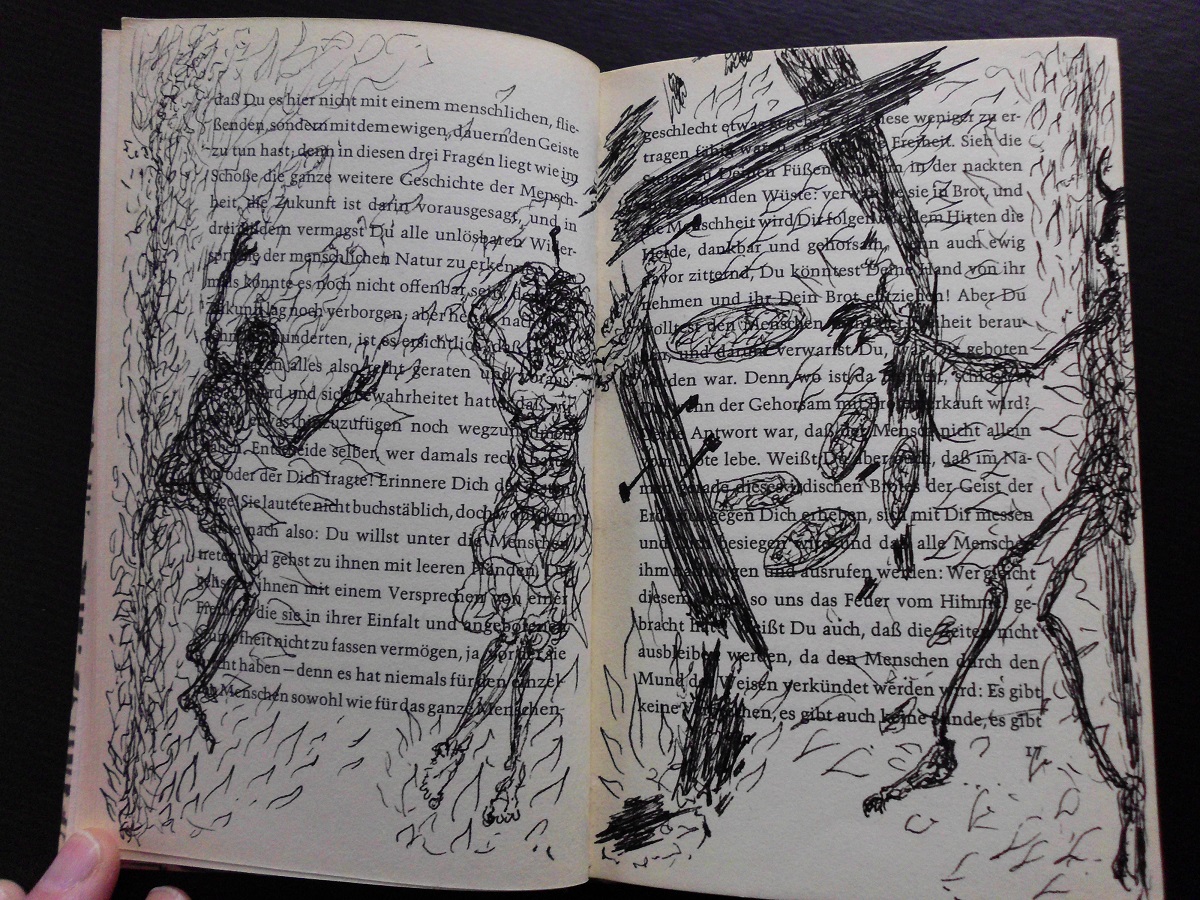 daß Du es hier nicht mit einem menschlichen, flie-
ßenden, sondern mit dem ewigen, dauernden Geiste
zu tun hast; denn in diesen drei Fragen liegt wie im
Schoße die ganze weitere Geschichte der Mensch-
heit, die Zukunft ist darin vorausgesagt, und in
drei Bildern vermagst Du alle unlösbaren Wider-
sprüche der menschlichen Natur zu erkennen.
mals konnte es noch nicht offenbar sein, die
Zukunft lag noch verborgen; aber heute, nach
hunderten, ist es ersichtlich, daß
alles also recht geraten und voraus
und sich bewahrheitet hatte, daß wir
etwas hinzuzufügen noch wegzunehmen
haben. Entscheide selber, wer damals recht hatte
oder der Dich fragte! Erinnere Dich der
ge! Sie lautete nicht buchstäblich, doch wohl dem
nach also: Du willst unter die Menschen
treten und gehst zu ihnen mit leeren Händen, Du
gehst zu ihnen mit einem Versprechen von einer
Freiheit, die sie in ihrer Einfalt und angeborenen
Dumpfheit nicht zu fassen vermögen, ja, vor der sie
Furcht haben – denn es hat niemals für den einzel-
nen Menschen sowohl wie für das ganze Menschen-
geschlecht etwas gegeben, das diese weniger zu er-
tragen fähig waren als die Freiheit. Sieh die
Steine zu Deinen Füßen in der nackten
glühenden Wüste: verwandle sie in Brot, und
die Menschheit wird Dir folgen wie dem Hirten die
Herde, dankbar und gehorsam, wenn auch ewig
davor zitternd, Du könntest Deine Hand von ihr
nehmen und ihr Dein Brot entziehen! Aber Du
wolltest den Menschen nicht der Freiheit berau-
ben, und darum verwarfst Du, was Dir geboten
worden war. Denn wo ist da Freiheit, schlossest
Du, wenn der Gehorsam mit Brot erkauft wird?
Deine Antwort war, daß der Mensch nicht allein
vom Brote lebe. Weißt Du aber auch, daß im Na-
men gerade dieses irdischen Brotes der Geist der
Erde sich gegen Dich erheben, sich mit Dir messen
und Dich besiegen wird und daß alle Menschen
ihm nachfolgen und ausrufen werden: Wer gleicht
diesem so uns das Feuer vom Himmel ge-
bracht hat! Weißt Du auch, daß die Zeiten nicht
ausbleiben werden, da den Menschen durch den
Mund der Weisen verkündet werden wird: Es gibt
keine Verbrechen, es gibt auch keine Sünde, es gibt
17